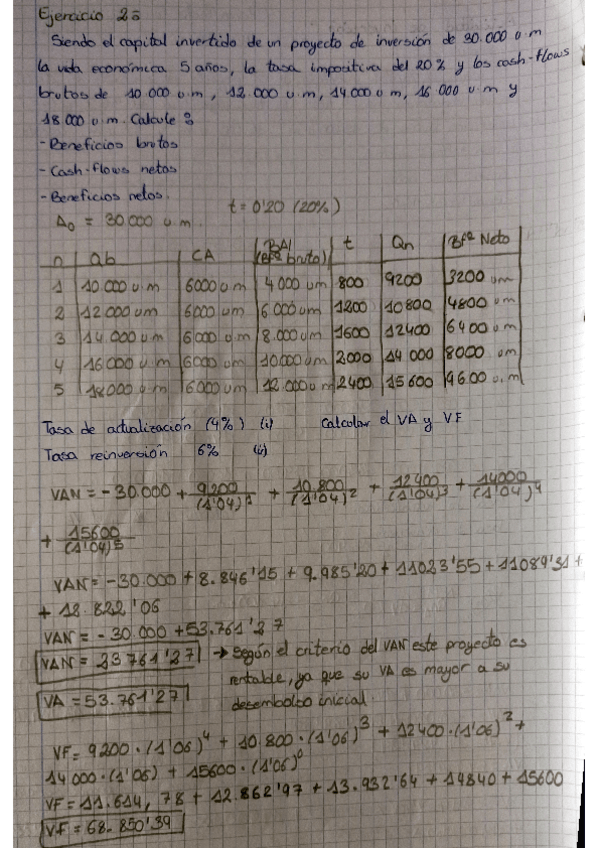 Ejercicio 2:
Siendo el capital invertido de un proyecto de inversión de 30.000 u.m
la vida económica 5 años, la tasa impositiva del 20% y los cash-flows
brutos de 10 000 u.m, 12.000 u.m, 14.000 u.m, 16 000 u.m y
18 000 u.m. Calcule:
- Beneficios brutos
- Cash-flows netos
- Beneficios netos.
t = 0'20 (20%)
A0 = 30.000 u.m.
n Qb CA BAI (Bfº bruto) t Qn Bfº Neto
1 10.000 u.m 6000 u m 4 000 um 800 9200 3200 um
2 12 000 um 6000 u m 6.000 um 1200 10 800 4800 um
3 14.000 um 6000 u m 8.000 um 1600 12400 6400 um
4 16000 u.m 6000 u m 10.000 um 2000 14 000 8000 um
5 18000 u.m 6000 um 12.000 u m 2400 15 600 9600 u.m
Tasa de actualización (4%) (i) Calcular el VA y VF
Tasa reinversión 6% (ii)
VAN = - 30.000 + 9.200/(1'04)1 + 10.800/(1'04)2 + 12400/(1'04)3 + 14000/(1'04)4
+ 15600/(1'04)5
VAN = -30.000 + 8.846'15 + 9.985'20 + 11023'55 + 11089'31 +
+ 12.822'06
VAN = - 30.000 + 53.761'27
VAN = 23 761'27 → Según el criterio del VAN este proyecto es
rentable, ya que su VA es mayor a su
VA = 53.761'27
desembolso inicial.
VF = 9200 · (1'06)4 + 10.800 · (1'06)3 + 12400 · (1'06)2 +
14 000 · (1'06) + 15600 · (1'06)0
VF = 11.614,78 + 12.862'97 + 13.932'64 + 14840 + 15600
VF = 68.850'39